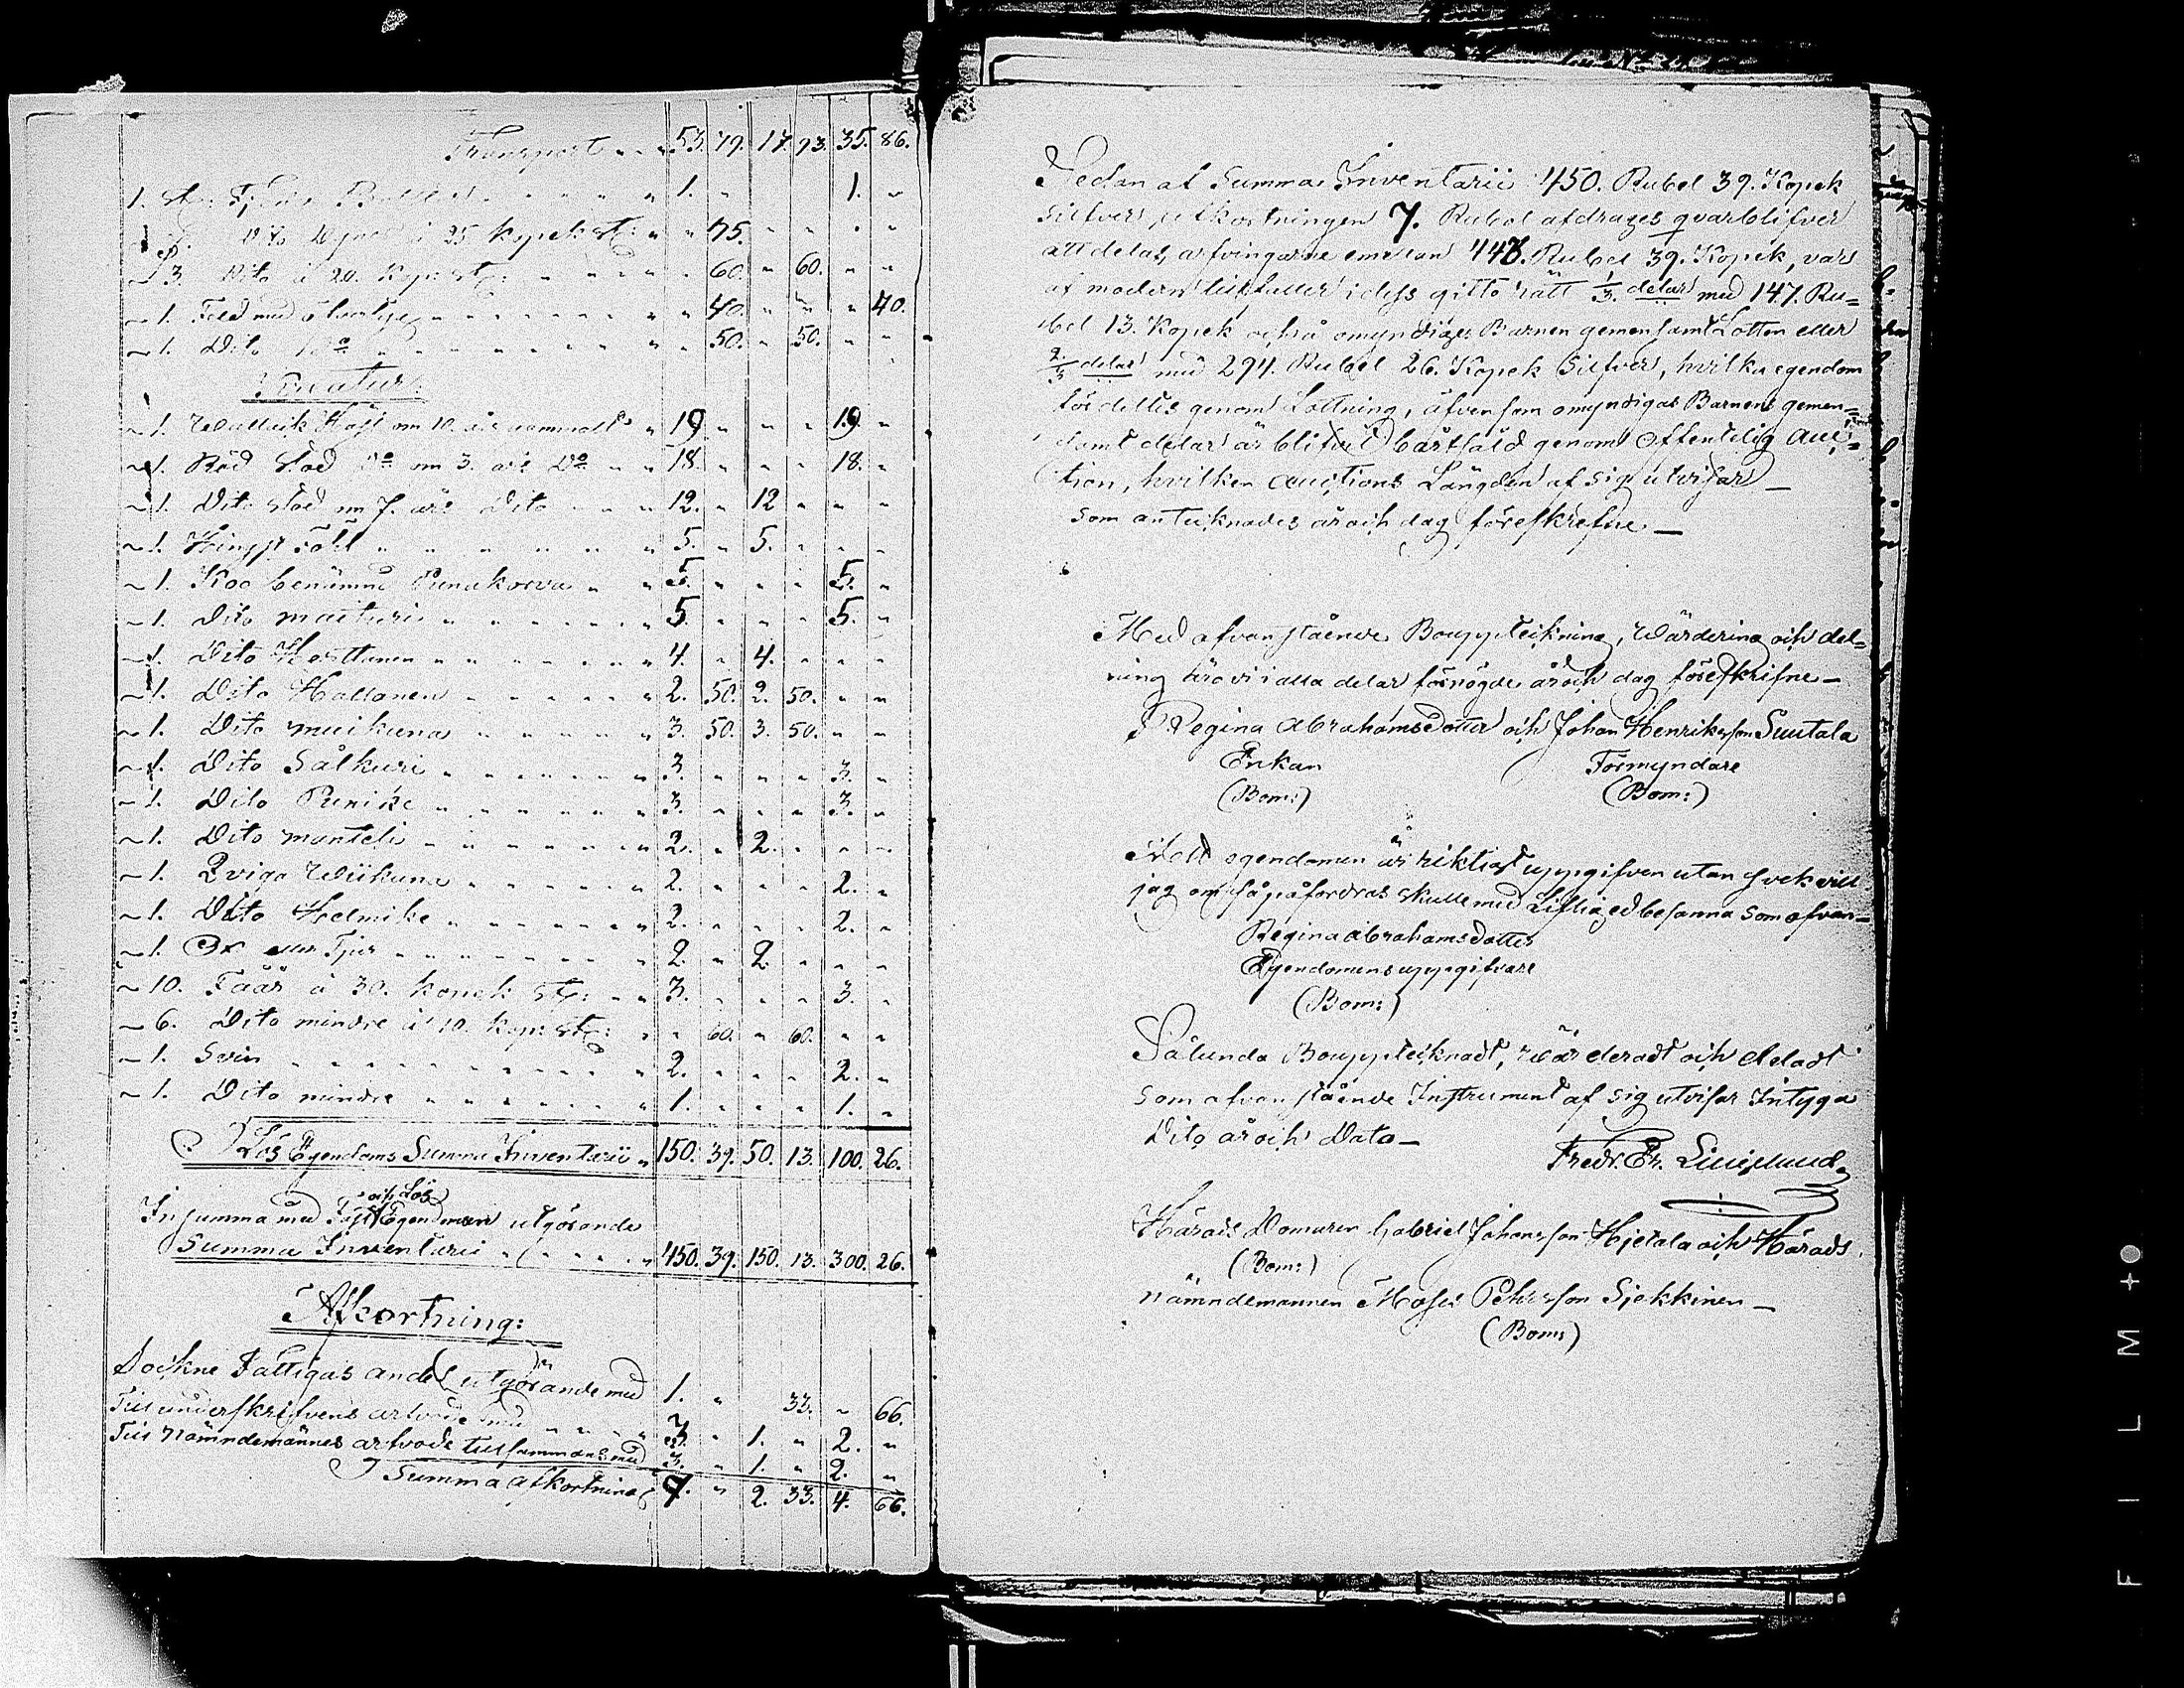 Transport " " " 53. 79. 17. 93. 35. 86.
1. st: " " " 1. " 1. "
Dito á 25 kopek st: " " 75. " " " "
3. Dito á 20. kop: st: " " 60. " 60. " "
1. Fäll med " " 40. " " " 40.
1. Dito Do " " 50. " 50. " "
Creatur:
1. Wallack Häst om 10. års gammalt " 19. " " " 19. "
1. Röd Stod Do om 3. års Do " " 18. " " " 18. "
1. Dito Stod om 7. års Dito " " 12. " 12 " " "
1. Hingst Fåhl " " 5. " 5. " " "
1. Koo benämnd Punakorva " " 5. " " " 5. "
1. Dito maitteri " " 5. " " " 5. "
1. Dito Herttunen " " 4. " 4. " " "
1. Dito Hallonen " " 2. 50. 2. 50. " "
1. Dito muikuna " " 3. 50. 3. 50. " "
1. Dito Sälkuri " " 3. " " " 3. "
1. Dito Punike " " 3. " " " 3. "
1. Dito manteli " " 2. " 2. " " "
1. Qviga Wiikuna " " 2. " " " 2. "
1. Dito Helmike " " 2. " " " 2. "
1. Ox eller Tjur " " 2. " 2. " " "
10. Fåår á 30. kopek st: " " 3. " " " 3. "
6. Dito mindre á 10. kop: st: " " 60. " 60. " "
1. Svin " " 2. " " " 2. "
1. Dito mindre " " 1. " " " 1. "
Lös Egendoms Summa Inventarii " 150. 39. 50. 13. 100. 26.
och Lös
In summa med Fast Egendomen utgörande
Summa Inventarii " " 450. 39. 150. 13. 300. 26.
Afkortning:
Sockne Fattigas andel utgörande med 1. " 33. " 66.
Till underskrifvens arfvode med " " 3. " 1. " 2. "
Till Nämndemännes arfvode tillsammans med 3. " 1. " 2. "
Summa afkortning 7. " 2. 33. 4. 66.
Sedan af Summa Inventarii 450. Rubel 39. Kopek
Silfver afkortningen 7. Rubel afdrages qvarblifver
att delas arfvingarne emellan 443. Rubel 39. Kopek, vars
af modern tillfaller i dess gifto rätt 1/3. delar med 147. Ru=
bel 13. Kopek och så omyndiga Barnen gemensamt Lotten eller
2/3 delar med 294. Rubel 26. Kopek Silfver, hvilka egendom
fördeltes genom Lottning, äfvensom omyndigas Barnens gemen=
samt delar är blifvit bårtsåld genom Offentelig Auc=
tion, hvilken Auctions Längden af sig utvisar _
som antecknades år och dag föreskrefne _
Med ofvanstående Bouppteckning, Wärdering och del=
ning äro vi i alla delar förnögde år och dag föreskrifne _
Regina Abrahamsdotter och Johan Henriksson Suutala
Enkan Förmyndare
(Bom:) (Bom:)
Att egendomen är riktigt uppgifven utan svek vill
jag om så påfordras skulle med Liflig ed besanna som ofvan _
Regina Abrahamsdotter
Egendomens uppgifvare
(Bom:)
Sålunda Bouppteknadt, wärderadt och deladt
som ofvanstående Instrument af sig utvisar Intyga
Dito år och Dato _
Fredr. Er.
Härads Domaren Gabriel Johansson Hjetala och Härads
(Bom:)
nämndemannen Moses Pehrsson Sjekkinen _
(Bom:)
FILM